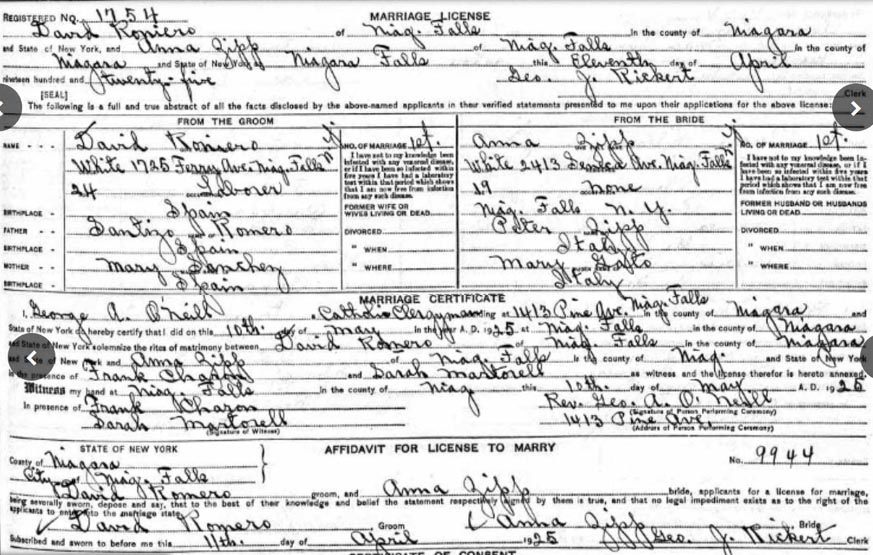 REGISTERED NO. 1754 MARRIAGE LICENSE
David Romero of Niag. Falls In the county of Niagara
and State of New York, and Anna Zipp of Niag. Falls In the county of
Niagara and State of New York at Niagara Falls this Eleventh day of April
nineteen hundred and twenty-five Geo. J. Rickert Clerk
[SEAL]
The following is a full and true abstract of all the facts disclosed by the above-named applicants in their verified statements presented to me upon their applications for the above license:
FROM THE GROOM
NAME David Romero
White 1725 Ferry Ave. Niag. Falls
24 Laborer
BIRTHPLACE Spain
FATHER Romero
BIRTHPLACE Spain
MOTHER Mary Sanchez
BIRTHPLACE Spain
NO. OF MARRIAGE 1st.
I have not to my knowledge been
infected with any venereal disease,
or if I have been so infected within
five years I have had a laboratory
test within that period which shows
that I am now free from infection
from any such disease.
FORMER WIFE OR
WIVES LIVING OR DEAD
DIVORCED
" WHEN
" WHERE
FROM THE BRIDE
Anna Zipp
White 2413 Seneca Ave. Niag. Falls
19 none
Niag. Falls N. Y.
Peter Zipp
Italy
Mary
Italy
NO. OF MARRIAGE 1st.
I have not to my knowledge been in-
fected with any venereal disease, or if I
have been so infected within five years
I have had a laboratory test within that
period which shows that I am now free
from infection from any such disease.
FORMER HUSBAND OR HUSBANDS
LIVING OR DEAD
DIVORCED
" WHEN
" WHERE
MARRIAGE CERTIFICATE
I, George A. O'Neill a Catholic Clergyman residing at 1413 Pine Ave. Niag. Falls in the county of Niagara and
State of New York do hereby certify that I did on this 10th. day of May in the year A. D. 1925 at Niag. Falls in the county of Niagara
and State of New York solemnize the rites of matrimony between David Romero of Niag. Falls in the county of Niagara
and State of New York and Anna Zipp of Niag. Falls in the county of Niag. and State of New York
in the presence of Frank and Sarah Martorell as witness and the license therefor is hereto annexed.
Witness my hand at Niag. Falls In the county of Niag this 10th. day of May A. D. 1925
In presence of Frank Rev. Geo. A. O'Neill
(Signature of Person Performing Ceremony)
Sarah Martorell 1413 Pine Ave.
(Signature of Witness) (Address of Person Performing Ceremony)
STATE OF NEW YORK AFFIDAVIT FOR LICENSE TO MARRY
County of Niagara No. 9944
City of Niag. Falls
David Romero groom, and Anna Zipp bride, applicants for a license for marriage,
being severally sworn, depose and say, that to the best of their knowledge and belief the statement respectively signed by them is true, and that no legal impediment exists as to the right of the
applicants to enter into the marriage state.
David Romero Groom Anna Zipp Bride
Subscribed and sworn to before me this 11th. day of April 1925 Geo. J. Rickert Clerk
CERTIFICATE OF CONSENT